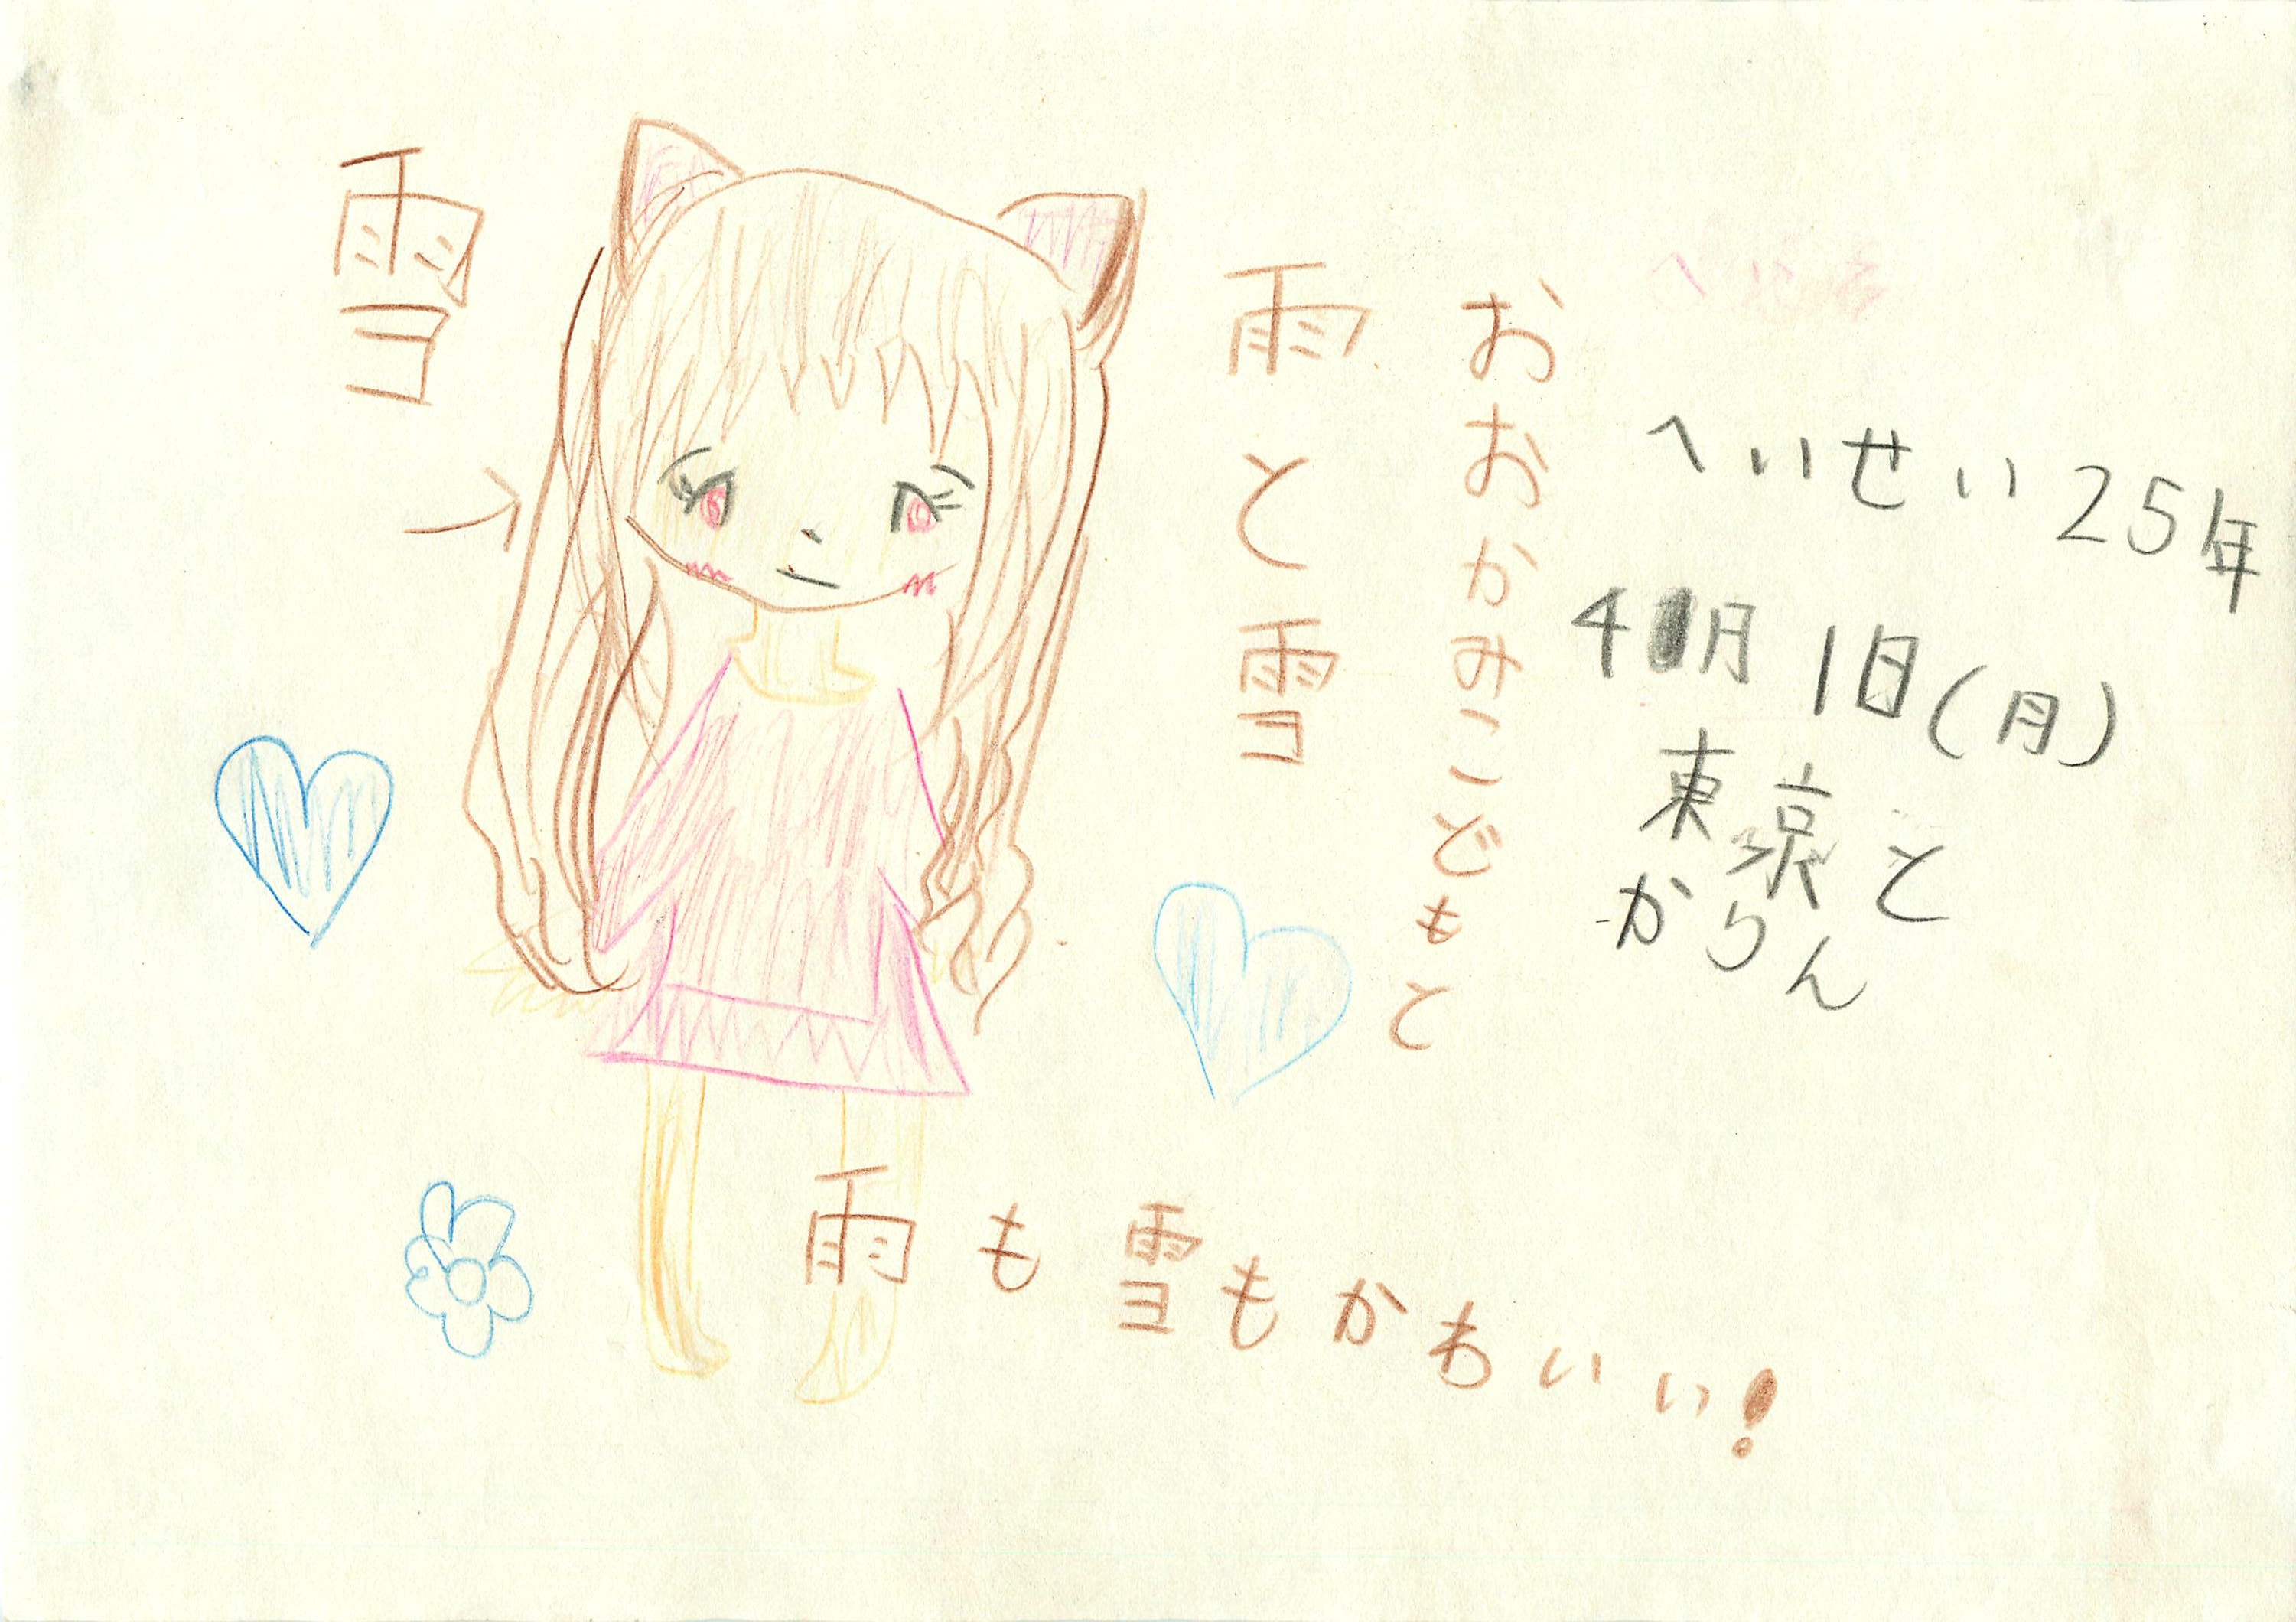 へいせい25年
4月1日(月)
東京と
かりん
おおかみこどもと
雨と雪
雪
雨も雪もかもいい!